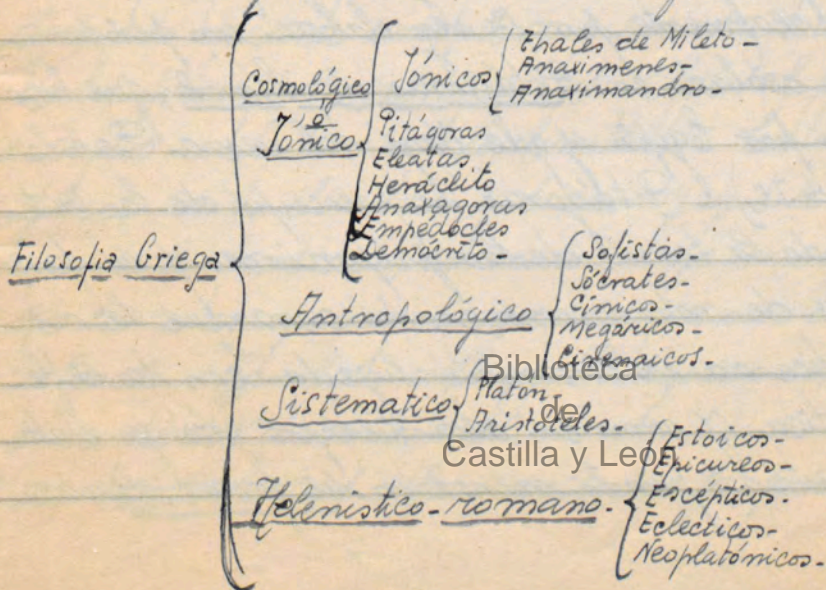 Filosofia Griega
Cosmológico
ó
Jónico
Jónicos
Thales de Mileto-
Anaximenes-
Anaximandro-
Pitágoras
Eleatas
Heráclito
Anaxagoras
Empedocles
Demócrito-
Antropológico
Sofistas-
Sócrates-
Cínicos-
Megáricos-
Cirenaicos-
Sistematico
Platón-
Aristóteles-
Helenistico-romano-
Estoicos-
Epicureos-
Escépticos-
Eclecticos-
Neoplatónicos-
Biblioteca
de
Castilla y León